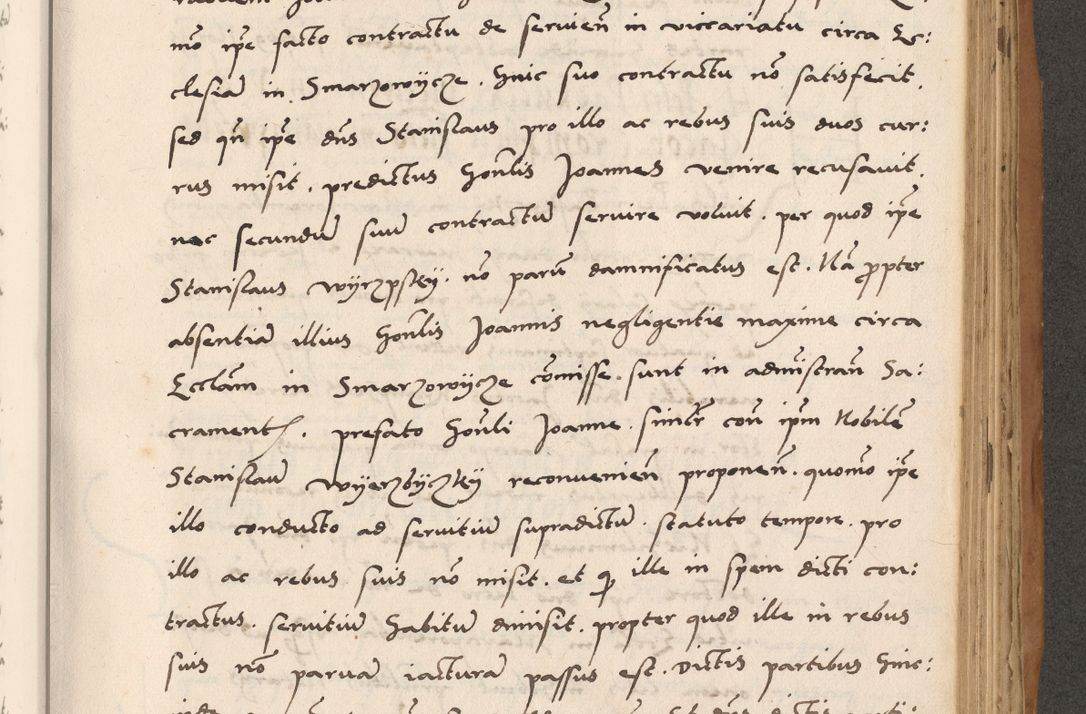 mo ip̄e facto contractu de servien̄ in viccariatu circa Ec:
clesiā in Smarzowÿcze. Huic suo contractu nō satisfecit,
sed qn̄ ip̄e dn̄s Stanislaus pro illo ac rebus suis duos cur:
rus misit, predictus Hon̄lis Joannes venire recusavit,
nec secundū suū contractū servire voluit, per quod ip̄e
Stanislaus Wÿrzpskÿ. nō parū damnificatus est. Nā propter
absentiā illius Hon̄lis Joannis negligentie maxime circa
Eccl̄am in Smarzowÿcze cōmisse sunt in adm̄istran̄ Sa:
crament. prefato Hon̄li Joanne. similr̄ con ip̄m Nobilē
Stanislaū Wÿerzbÿczkÿ reconvenien̄ proponen̄. quomō ip̄e
illo conducto ad servitiū supradictū. statuto tempore. pro
illo ac rebus suis nō misit. et q ille in spem dicti con:
tractus. servitiū habitū dimisit. propter quod ille in rebus
suis nō parvā iacturā passus est. Dictis partibus hinc: